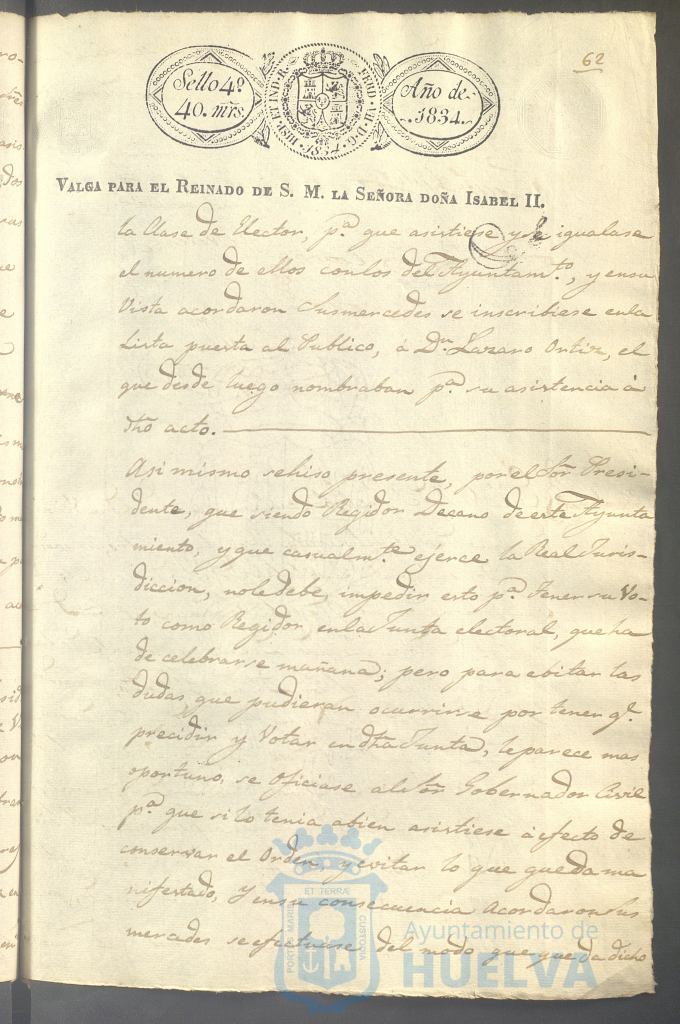 62
Sello 4º
40. mrs.
HISP. ET IND. R. FERD. VII. D. G. 1834.
Año de
1834.
VALGA PARA EL REINADO DE S. M. LA SEÑORA DOÑA ISABEL II.
la Clase de Elector, pª que asistiese y se igualase
el numero de ellos con los del Ayuntamto, y en su
Vista acordaron Susmercedes se inscribiese en la
Lista puesta al Publico, á Dn Lazaro Ortiz, el
que desde luego nombraban pª su asistencia á
dho acto.
Asi mismo sehiso presente, por el Sor Presi-
dente, que siendo Regidor Decano de este Ayunta
miento, y que casualmte ejerce la Real Juris-
diccion, nole debe, impedir esto pª tener su Vo-
to como Regidor, en la Junta electoral, que ha
de celebrarse mañana; pero para ebitar las
dudas que pudieran ocurrirse por tener qe
precidir y Votar en dha Junta, le parece mas
oportuno, se oficiase al Sor Gobernador Civil
pª que si lo tenia abien asistiese á efecto de
conservar el Orden, y evitar lo que queda ma
nifestado, Y en su consecuencia Acordaron Sus
mercedes se efectuase del modo que queda dicho
PORTUS MARIS ET TERRÆ CUSTODIA
Ayuntamiento de
HUELVA